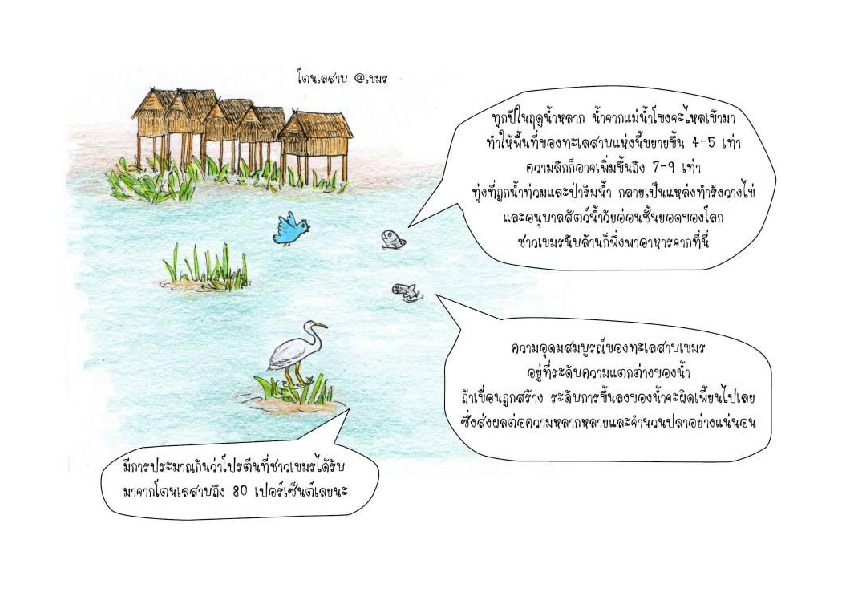 โตนเลสาบ @เขมร
ทุกปีในฤดูน้ำหลาก น้ำจากแม่น้ำโขงจะไหลเข้ามา
ทำให้พื้นที่ของทะเลสาบแห่งนี้ขยายขึ้น 4-5 เท่า
ความลึกก็อาจเพิ่มขึ้นถึง 7-9 เท่า
ทุ่งที่ถูกน้ำท่วมและป่าริมน้ำ กลายเป็นแหล่งทำรังวางไข่
และอนุบาลสัตว์น้ำวัยอ่อนชั้นยอดของโลก
ชาวเขมรนับล้านก็พึ่งพาอาหารจากที่นี่
ความอุดมสมบูรณ์ของทะเลสาบเขมร
อยู่ที่ระดับความแตกต่างของน้ำ
ถ้าเขื่อนถูกสร้าง ระดับการขึ้นลงของน้ำจะผิดเพี้ยนไปเลย
ซึ่งส่งผลต่อความหลากหลายและจำนวนปลาอย่างแน่นอน
มีการประมาณกันว่าโปรตีนที่ชาวเขมรได้รับ
มาจากโตนเลสาบถึง 80 เปอร์เซ็นต์เลยนะ